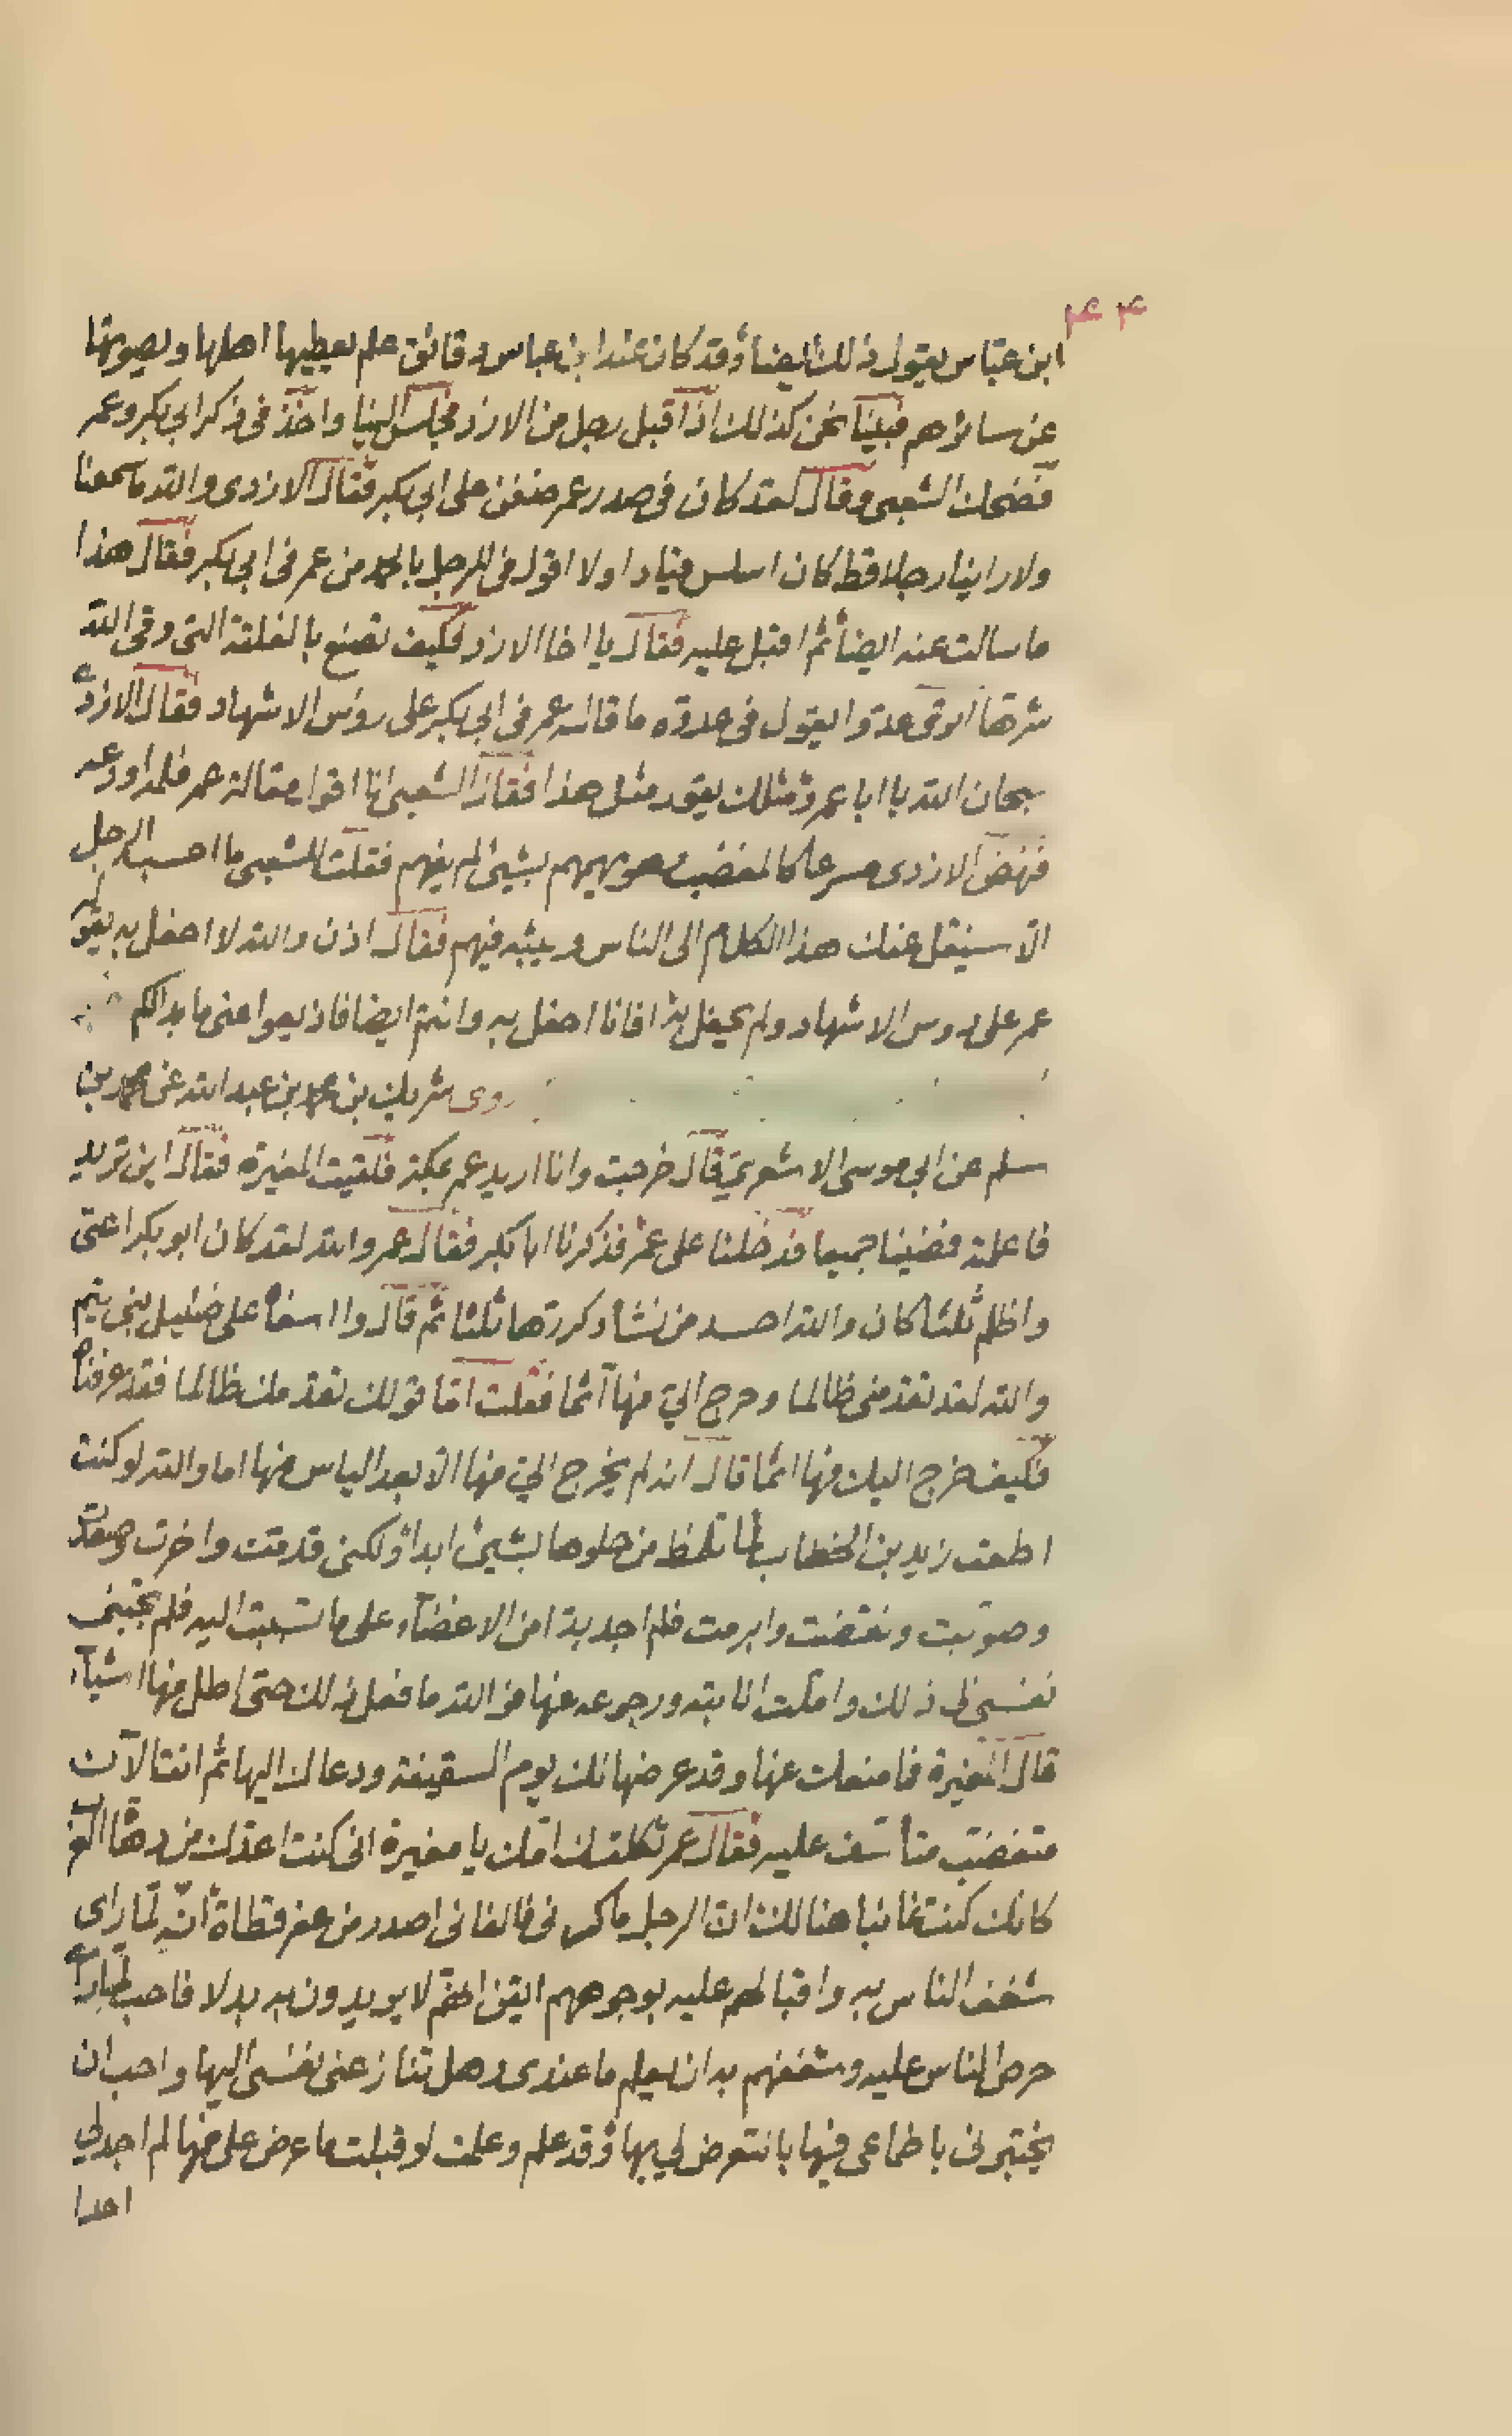 ۴۴
ابن عباس يقول ذلك ايضا وقد كان عند ابن عباس دقائق علم يعطيها اهلها ويصونها
عن سائرهم فبينا نحن كذلك اذ اقبل رجل من الازد فجلس الينا واخذ فى ذكر ابى بكر وعمر
فضحك الشعبى وقال لقد كان فى صدر عمر ضغن على ابى بكر فقال الازدى والله ما سمعنا
ولا راينا رجلا قط كان اسلس قيادا ولا اقول فى الرجل بالحمد من عمر فى ابى بكر فقال هذا
ما سالت عنه ايضا ثم اقبل عليه فقال يا اخا الازد فكيف تصنع بالفلتة التى وقى الله
شرها اترى عدوا يقول فى عدوه ما قاله عمر فى ابى بكر على رؤس الاشهاد فقال الازدى
سبحان الله يا ابا عمرو مثلك يقول مثل هذا فقال الشعبى انا اقول مقالة عمر فلمه او دعه
فنهض الازدى مسرعا كالمغضب وهو يهمهم بشيئ لم يفهم فقلت للشعبى ما احسب الرجل
الا سينقل عنك هذا الكلام الى الناس ويبثه فيهم فقال اذن والله لا احفل به يقوله
عمر على روس الاشهاد ولم يحفل به افانا احفل به وانتم ايضا فاذيعوا عنى ما بدا لكم
روى شريك بن محمد بن عبد الله عن محمد بن
سلم عن ابى موسى الاشعرى قال خرجت وانا اريد عمر بمكة فلقيت المغيرة فقال اين تريد
فاعلمته فمضينا جميعا فدخلنا على عمر فذكرنا ابا بكر فقال عمر والله لقد كان ابو بكر اعتى
واظلم ثلثا كان والله احسد من نشأ وكررتها ثلثا ثم قال وا اسفاه على ضئيل بنى تيم
والله لقد تقدمنى ظالما وخرج الى منها آثما فقلت اما قولك تقدمك ظالما فقد عرفناه
فكيف خرج اليك منها اثما قال انه لم يخرج الى منها الا بعد الياس منها اما والله لو كنت
اطعت زيد بن الخطاب لما تلمظ من حلوها بشيئ ابدا ولكنى قدمت واخرت وصعدت
وصوبت ونقضت وابرمت فلم اجد بدا من الاغضاء على ما تشبثت اليه فلم تجبنى
نفسى الى ذلك واملت انابته ورجوعه عنها فو الله ما فعل ذلك حتى اطل منها اشياء
قال المغيرة فما منعك عنها وقد عرضها لك يوم السقيفة ودعاك اليها ثم انت الآن
متغضب متأسف عليه فقال عمر ثكلتك امك يا مغيرة انى كنت اعدك من دهاة العرب
كانك كنت غائبا هنالك ان الرجل ماكرنى فالفانى احذر من قطاة انه لما راى
شغف الناس به واقبالهم عليه بوجوههم ايقن انهم لا يريدون به بدلا فاحب لما راى
حرص الناس عليه وشغفهم به ان يعلم ما عندى وهل تنازعنى نفسى اليها واحب ان
يختبرنى باطماعى فيها بالتعرض لى بها وقد علم وعلمت لو قبلت ما عرض على منها لم اجد لى
احدا